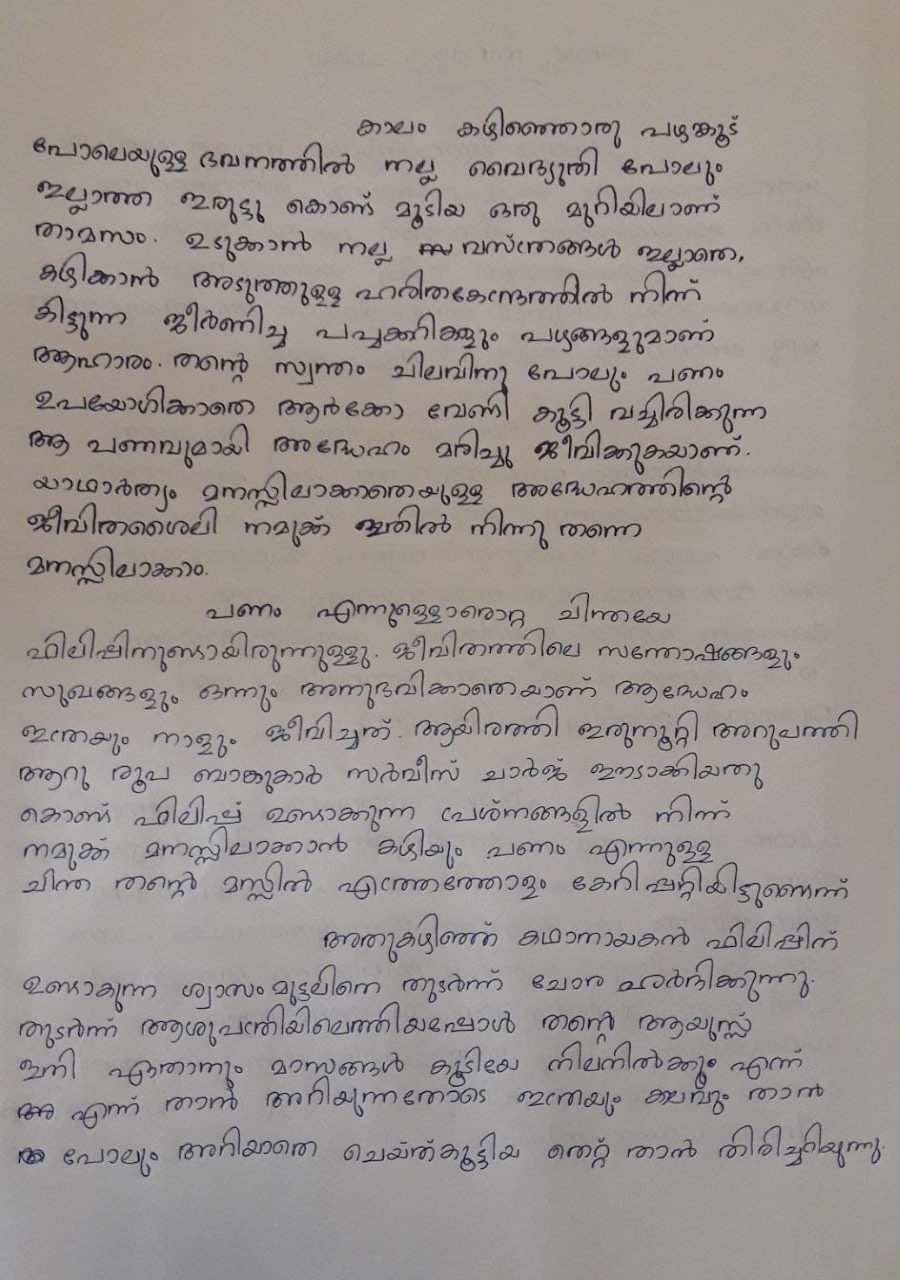 കാലം കഴിഞ്ഞൊരു പഴങ്കൂട്
പോലെയുള്ള ഭവനത്തിൽ നല്ല വൈദ്യുതി പോലും
ഇല്ലാത്ത ഇരുട്ടു കൊണ്ട് മൂടിയ ഒരു മുറിയിലാണ്
താമസം. ഉടുക്കാൻ നല്ല വസ്ത്രങ്ങൾ ഇല്ലാതെ,
കഴിക്കാൻ അടുത്തുള്ള ഹരിതകേന്ദ്രത്തിൽ നിന്ന്
കിട്ടുന്ന ജീർണിച്ച പച്ചക്കറികളും പഴങ്ങളുമാണ്
ആഹാരം. തന്റെ സ്വന്തം ചിലവിനു പോലും പണം
ഉപയോഗിക്കാതെ ആർക്കോ വേണ്ടി കൂട്ടി വച്ചിരിക്കുന്ന
ആ പണവുമായി അദ്ദേഹം മരിച്ചു ജീവിക്കുകയാണ്.
യാഥാർത്ഥ്യം മനസ്സിലാക്കാതെയുള്ള അദ്ദേഹത്തിന്റെ
ജീവിതശൈലി നമുക്ക് ഇതിൽ നിന്നു തന്നെ
മനസ്സിലാക്കാം.
പണം എന്നുള്ളൊരൊറ്റ ചിന്തയേ
ഫിലിപ്പിനുണ്ടായിരുന്നുള്ളു. ജീവിതത്തിലെ സന്തോഷങ്ങളും
സുഖങ്ങളും ഒന്നും അനുഭവിക്കാതെയാണ് ആദ്ദേഹം
ഇത്രയും നാളും ജീവിച്ചത്. ആയിരത്തി ഇരുനൂറ്റി അറുപത്തി
ആറു രൂപ ബാങ്കുകാർ സർവീസ് ചാർജ് ഈടാക്കിയതു
കൊണ്ട് ഫിലിപ്പ് ഉണ്ടാക്കുന്ന പ്രശ്നങ്ങളിൽ നിന്ന്
നമുക്ക് മനസ്സിലാക്കാൻ കഴിയും പണം എന്നുള്ള
ചിന്ത തന്റെ മസ്സിൽ എത്രത്തോളം കേറി പറ്റിയിട്ടുണ്ടെന്ന്
അതുകഴിഞ്ഞ് കഥാനായകൻ ഫിലിപ്പിന്
ഉണ്ടാകുന്ന ശ്വാസംമുട്ടലിനെ തുടർന്ന് ചോര ഛർദിക്കുന്നു.
തുടർന്ന് ആശുപത്രിയിലെത്തിയപ്പോൾ തന്റെ ആയുസ്സ്
ഇനി ഏതാനും മാസങ്ങൾ കൂടിയേ നിലനിൽക്കും എന്ന്
എന്ന് താൻ അറിയുന്നതോടെ ഇത്രയും കാലവും താൻ
പോലും അറിയാതെ ചെയ്ത്കൂട്ടിയ തെറ്റ് താൻ തിരിച്ചറിയുന്നു.